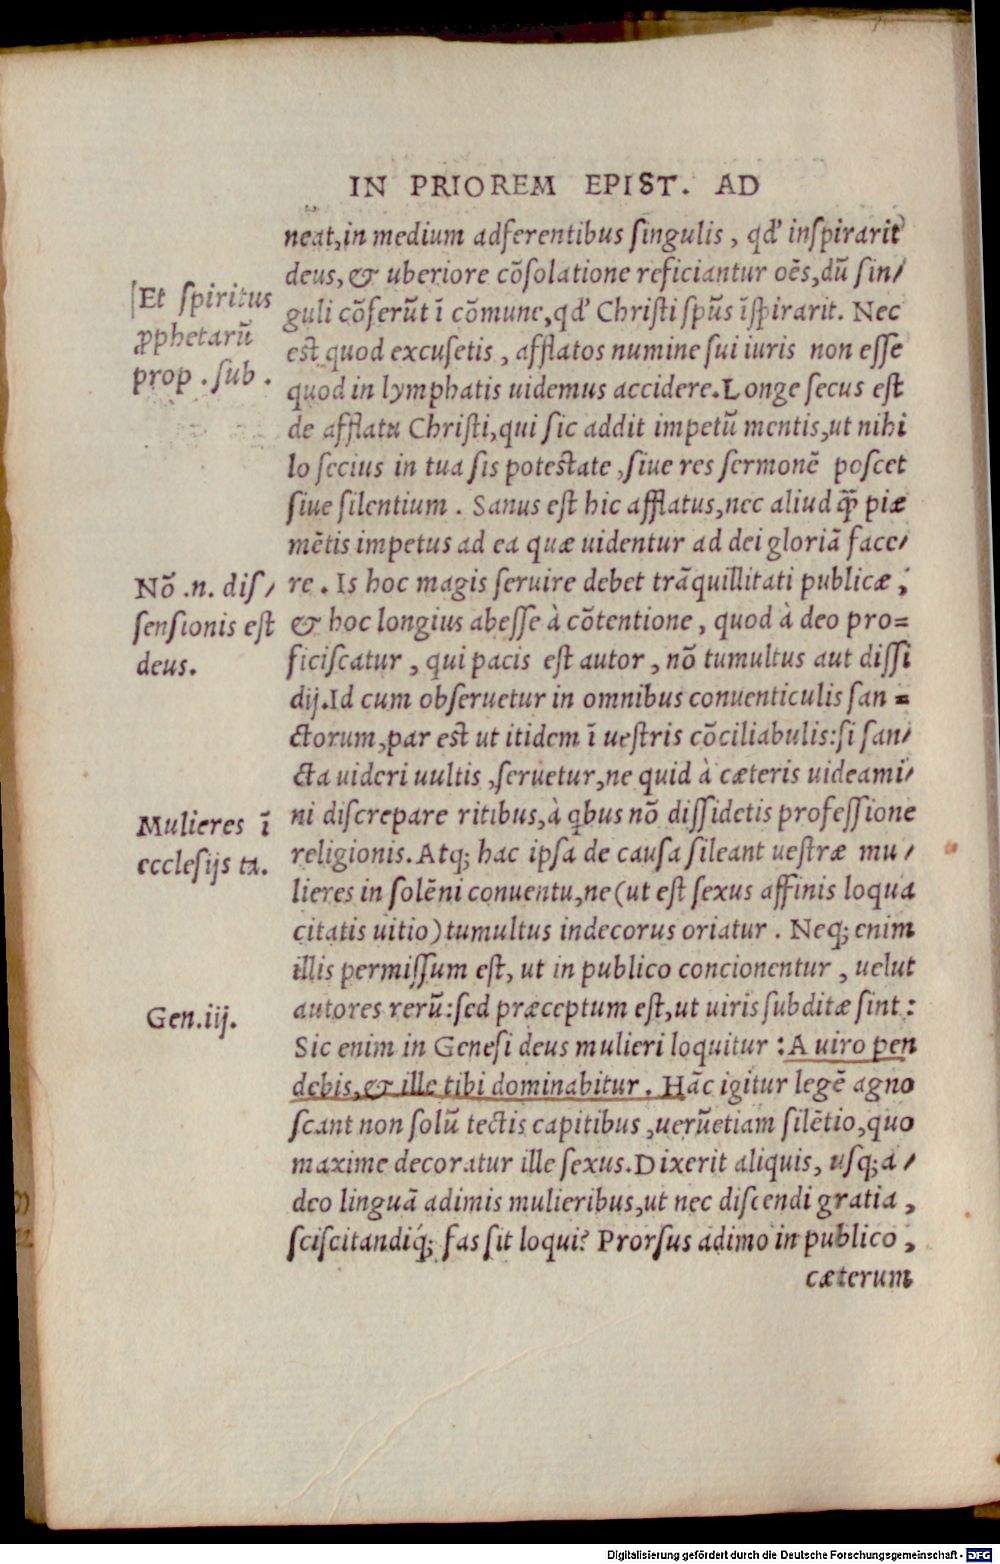 IN PRIOREM EPIST. AD
neat,in medium adferentibus ſingulis , qđ inſpirarit
deus, & uberiore cõſolatione reficiantur oẽs,dũ ſin/
guli cõferũt ĩ cõmune,qđ Chriſti ſpũs ĩſpirarit. Nec
est quod excuſetis , afflatos numine ſui iuris non eſſe
quod in lymphatis uidemus accidere.Longe ſecus eſt
de afflatu Chriſti,qui ſic addit impetũ mentis,ut nihi
lo ſecius in tua ſis potestate ,ſiue res ſermonẽ poſcet
ſiue ſilentium . Sanus eſt hic afflatus,nec aliud q̃ꝫ piæ
mẽtis impetus ad ea quæ uidentur ad dei gloriã face/
re . Is hoc magis ſeruire debet trãquillitati publicæ ,
& hoc longius abeſſe à cõtentione , quod à deo pro=
ficiſcatur , qui pacis est autor , nõ tumultus aut diſſi
dij.Id cum obſeruetur in omnibus conuenticulis ſan =
ctorum,par est ut itidem ĩ ueſtris cõciliabulis:ſi ſan/
cta uideri uultis ,ſeruetur,ne quid à cæteris uideami/
ni diſcrepare ritibus,à ꝗbus nõ diſſidetis profeſſione
religionis.Atqꝫ hac ipſa de cauſa ſileant ueſtræ mu /
lieres in ſolẽni conuentu,ne(ut eſt ſexus affinis loqua
citatis uitio)tumultus indecorus oriatur . Neqꝫ enim
illis permiſſum eſt, ut in publico concionentur , uelut
autores rerũ:ſed præceptum eſt,ut uiris ſubditæ ſint :
Sic enim in Geneſi deus mulieri loquitur :A uiro pen
debis,& ille tibi dominabitur . Hãc igitur legẽ agno
ſcant non ſolũ tectis capitibus ,uerũetiam ſilẽtio,quo
maxime decoratur ille ſexus.Dixerit aliquis, uſqꝫ a /
deo linguã adimis mulieribus,ut nec diſcendi gratia ,
ſciſcitandiq́ꝫ fas ſit loqui? Prorſus adimo in publico ,
cæterum
Et ſpiritus
ꝓphetarũ
prop . ſub .
Nõ .n. diſ /
ſenſionis eſt
deus.
Mulieres ĩ
eccleſijs ta.
Gen.iij.
Digitalisierung gefördert durch die Deutsche Forschungsgemeinschaft - DFG